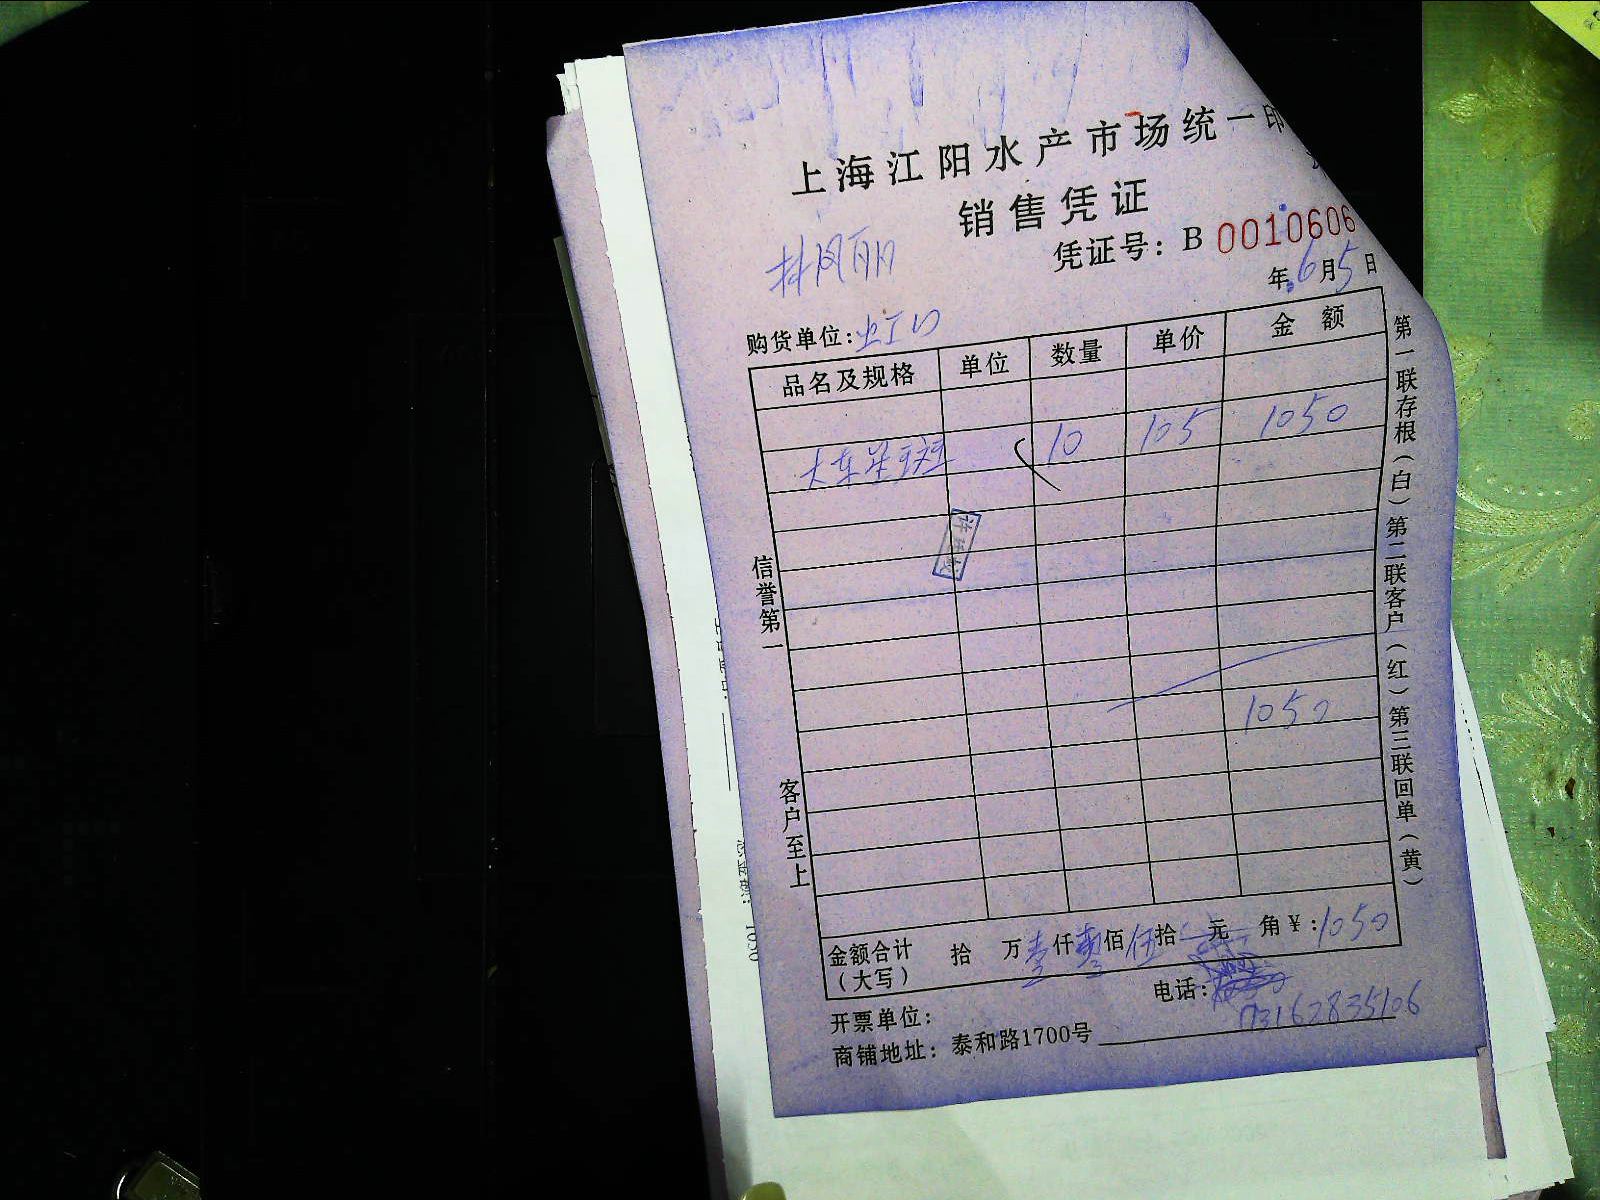 上海江阳水产市场统一印
销售凭证
凭证号：B 0010606
林凤丽
年6月5日
购货单位：虹口
品名及规格 单位 数量 单价 金额
大东星斑 10 105 1050
1050
金额合计（大写） 拾 万壹仟零佰伍拾 元 角 ¥：1050
开票单位： 电话：
商铺地址：泰和路1700号
信誉第一
客户至上
第一联存根（白）第二联客户（红）第三联回单（黄）